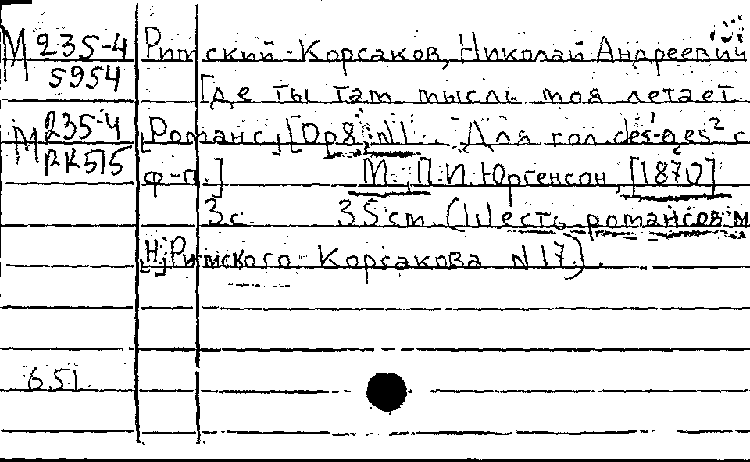 М 235-4 Римский-Корсаков, Николай Андреевич
5954 Где ты там мысль моя летает
М 235-4 [Романс] [Op8, N1] . Для гол. des¹-ges² с
РК515 ф-п.] М., П.И. Юргенсон, [1870]
3 с 35 cm (Шесть романсов м
[Н] Римского-Корсакова N 17).
651